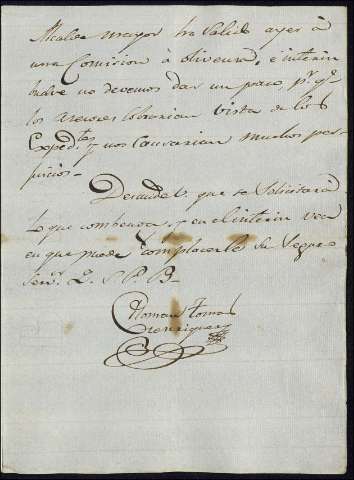 Alcalde mayor ha Salido ayer à
una Comision à Olivenza, è interin
buelve no devemos dar un paso p.r q.e
los Asesores Cobrarian vista de los
Exped.tes y nos Causarian muchos per
juicios-
que se Solicitarà
lo que combenga, y en el interin vea
en que puede complacerle Su Seguro
Serv.r Q. S. P. B-
Tomas
Henriquez